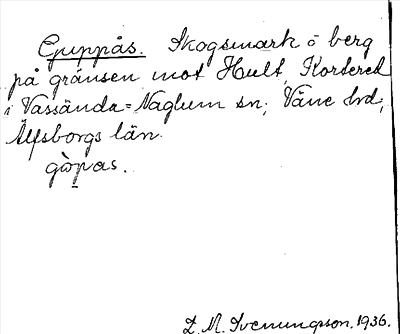 Guppås. Skogsmark o berg
på gränsen mot Hult, Kortered
i Vassända-Naglum sn; Väne hd,
Älfsborgs län.
gòpas.
D. M. Svenungsson. 1936.